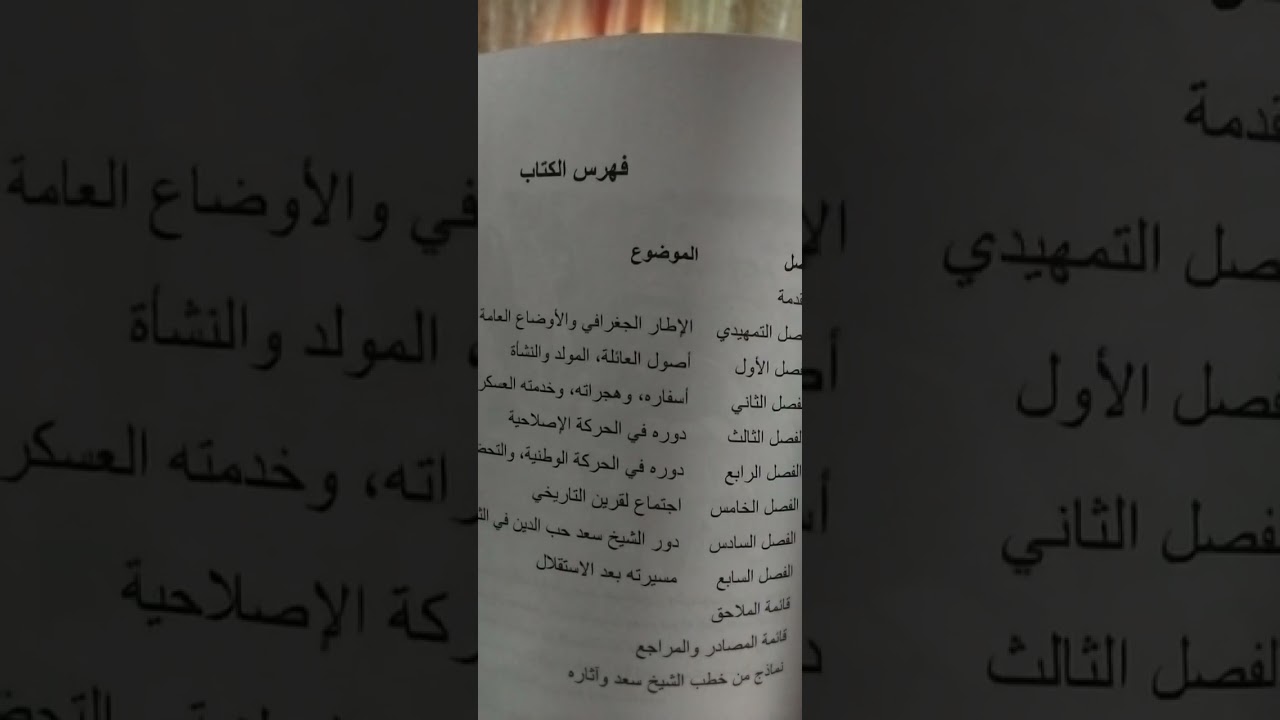 فهرس الكتاب
الموضوع
الإطار الجغرافي والأوضاع العامة التمهيدي
الأول أصول العائلة، المولد والنشأة
الثاني أسفاره، وهجراته، وخدمته
الفصل الثالث دوره في الحركة الإصلاحية
الفصل الرابع دوره في الحركة الوطنية،
الفصل الخامس اجتماع لقرين التاريخي
الفصل السادس دور الشيخ سعد حب الدين في
الفصل السابع مسيرته بعد الاستقلال
قائمة الملاحق
قائمة المصادر والمراجع
نماذج من خطب الشيخ سعد وآثاره